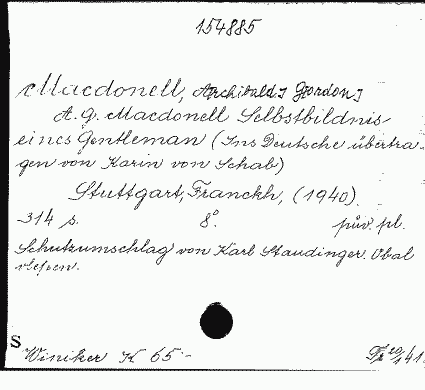 154885
Macdonell, A[rchibald] G[ordon]
A. G. Macdonell Selbstbildnis
eines Gentleman (Ins Deutsche übertra-
gen von Karin von Schab)
Stuttgart, Franckh, (1940).
314 s. 8°. pův. pl.
Schutzumschlag von Karl Staudinger. Obal
vlepen.
S
Winiker K 65.-